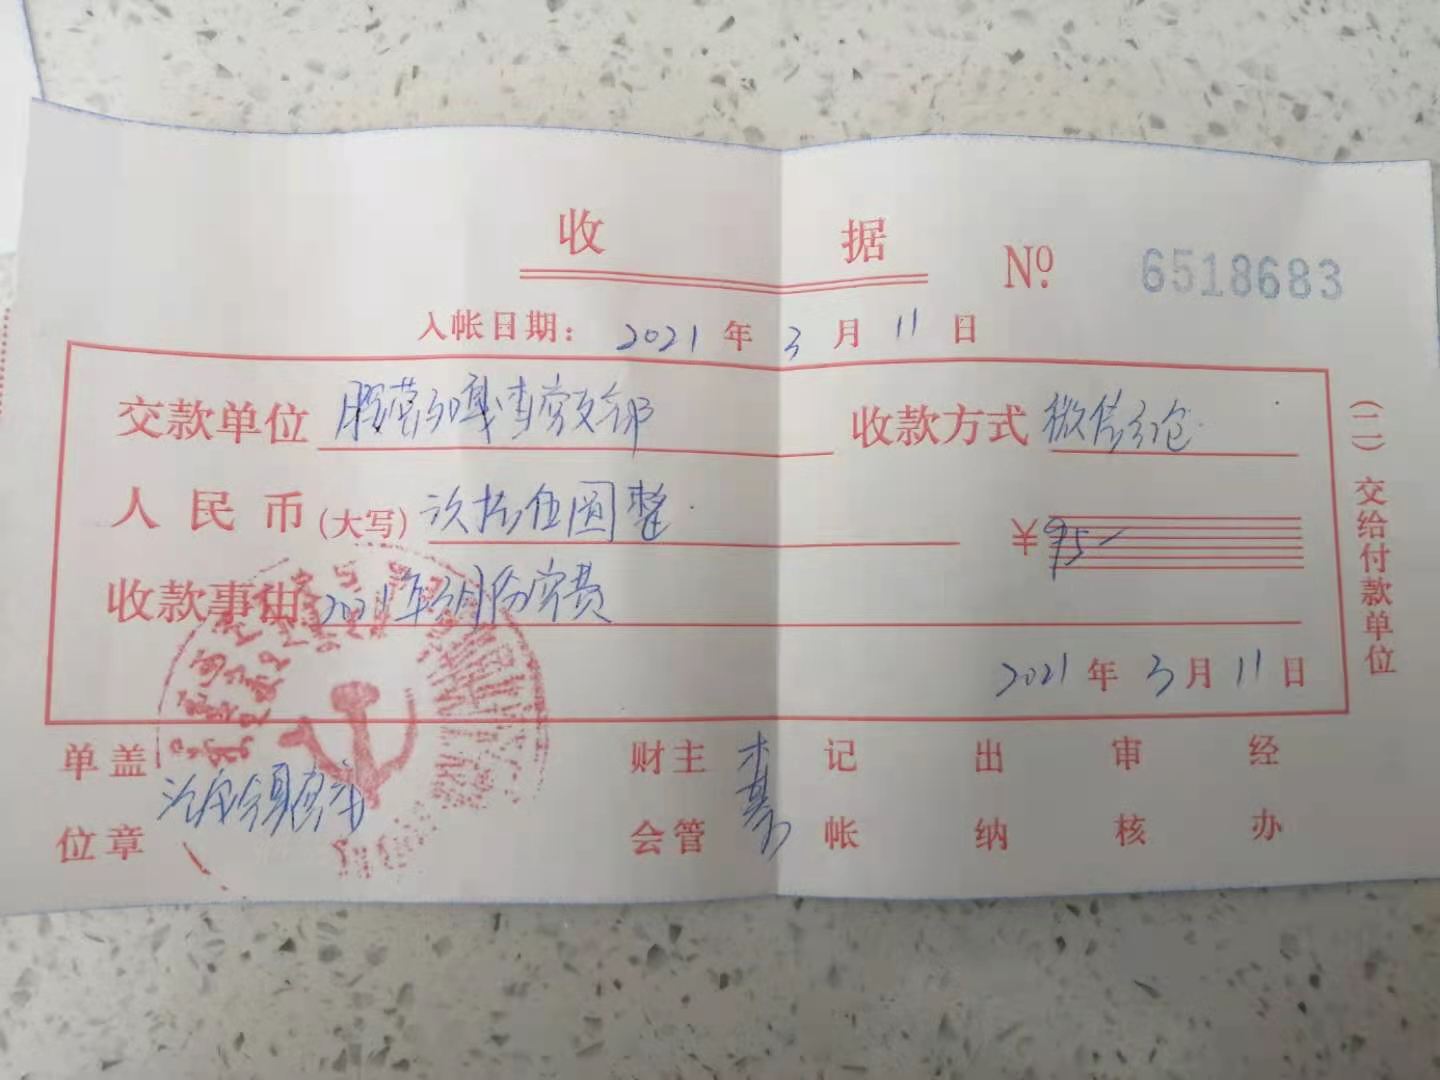 收据 № 6518683
入帐日期: 2021 年 3 月 11 日
交款单位 支部 收款方式 微信红包
人民币(大写) 拾伍圆整 ¥95—
收款事由 2021年3月份党费
2021 年 3 月 11 日
单位盖章 财会主管 记帐 出纳 审核 经办
(二)交给付款单位